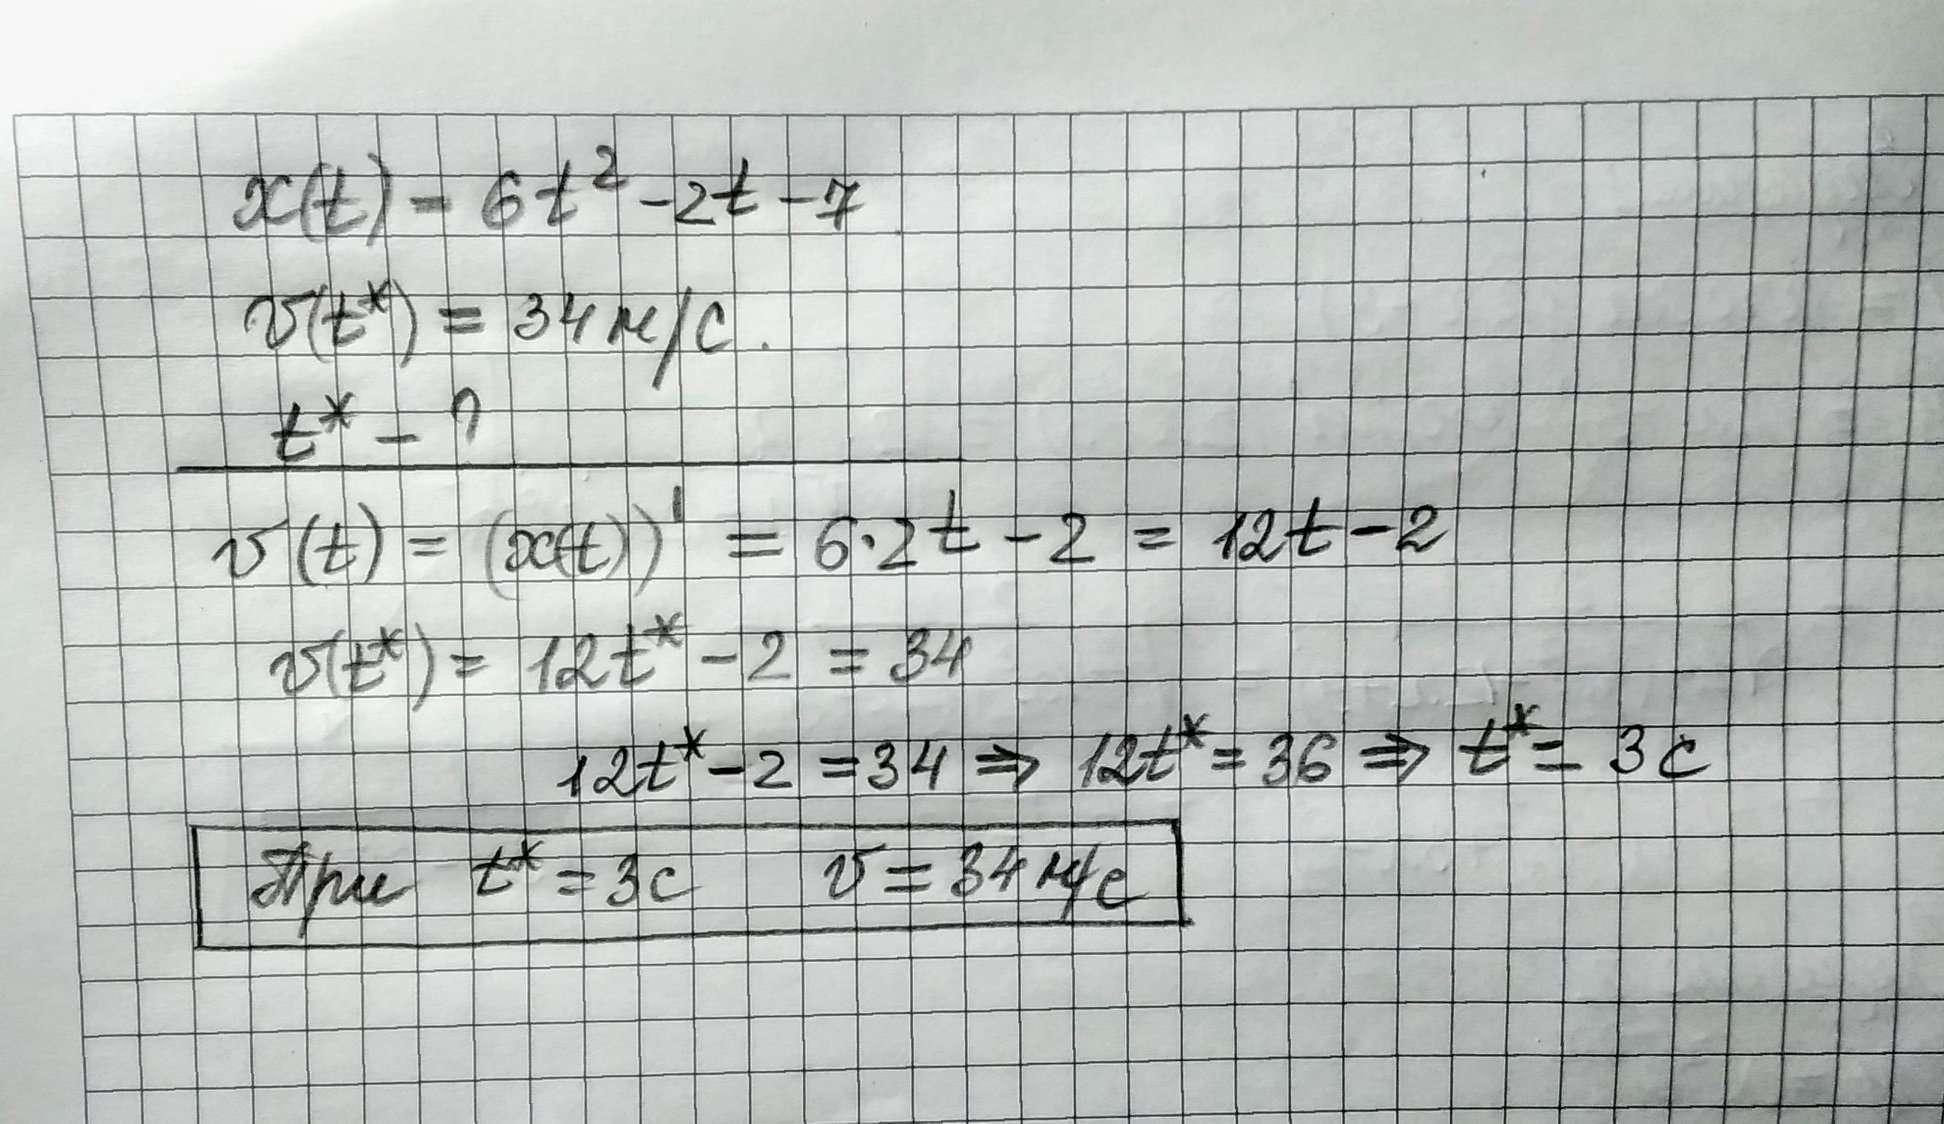 x(t) = 6t² - 2t - 7
v(t*) = 34 м/с.
t* - ?
v(t) = (x(t))' = 6·2t - 2 = 12t - 2
v(t*) = 12t* - 2 = 34
12t* - 2 = 34 ⇒ 12t* = 36 ⇒ t* = 3 с
При t* = 3с v = 34 м/с